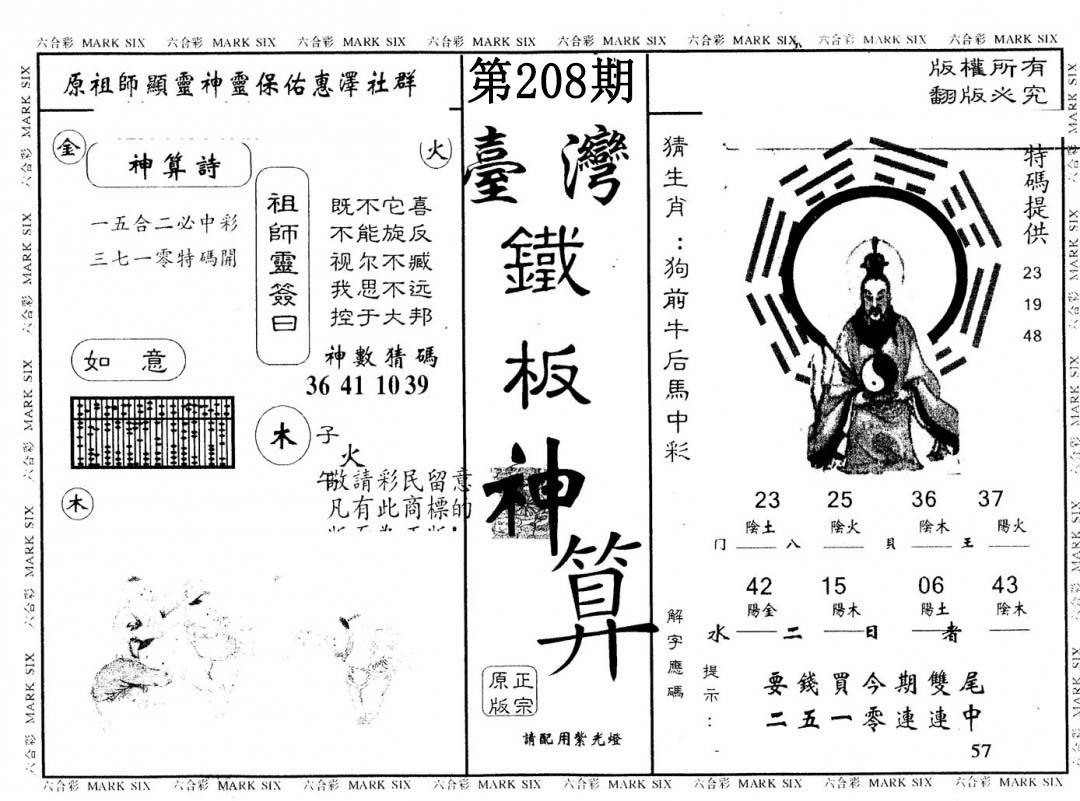 六合彩 MARK SIX 六合彩 MARK SIX 六合彩 MARK SIX 六合彩 MARK SIX 六合彩 MARK SIX 六合彩 MARK SIX 六合彩 MARK SIX 六合彩 MARK SIX
原祖師顯靈神靈保佑惠澤社群
金
火
神算詩
一五合二必中彩
三七一零特碼開
祖師靈簽曰
既不它喜
不能旋反
视尔不臧
我思不远
控于大邦
神數猜碼
36 41 10 39
如意
木
子
火
午
木
敬請彩民留意
凡有此商標的
第208期
臺灣
鐵
板
神
算
正宗
原版
請配用紫光燈
版權所有
翻版必究
猜生肖：狗前牛后馬中彩
特碼提供
23
19
48
23 25 36 37
陰土 陰火 陰木 陽火
门 八 貝 王
42 15 06 43
陽金 陽木 陽土 陰木
水 二 日 者
解字應碼
提示：
要錢買今期雙尾
二五一零連連中
57
六合彩 MARK SIX 六合彩 MARK SIX 六合彩 MARK SIX 六合彩 MARK SIX 六合彩 MARK SIX 六合彩 MARK SIX 六合彩 MARK SIX 六合彩 MARK SIX